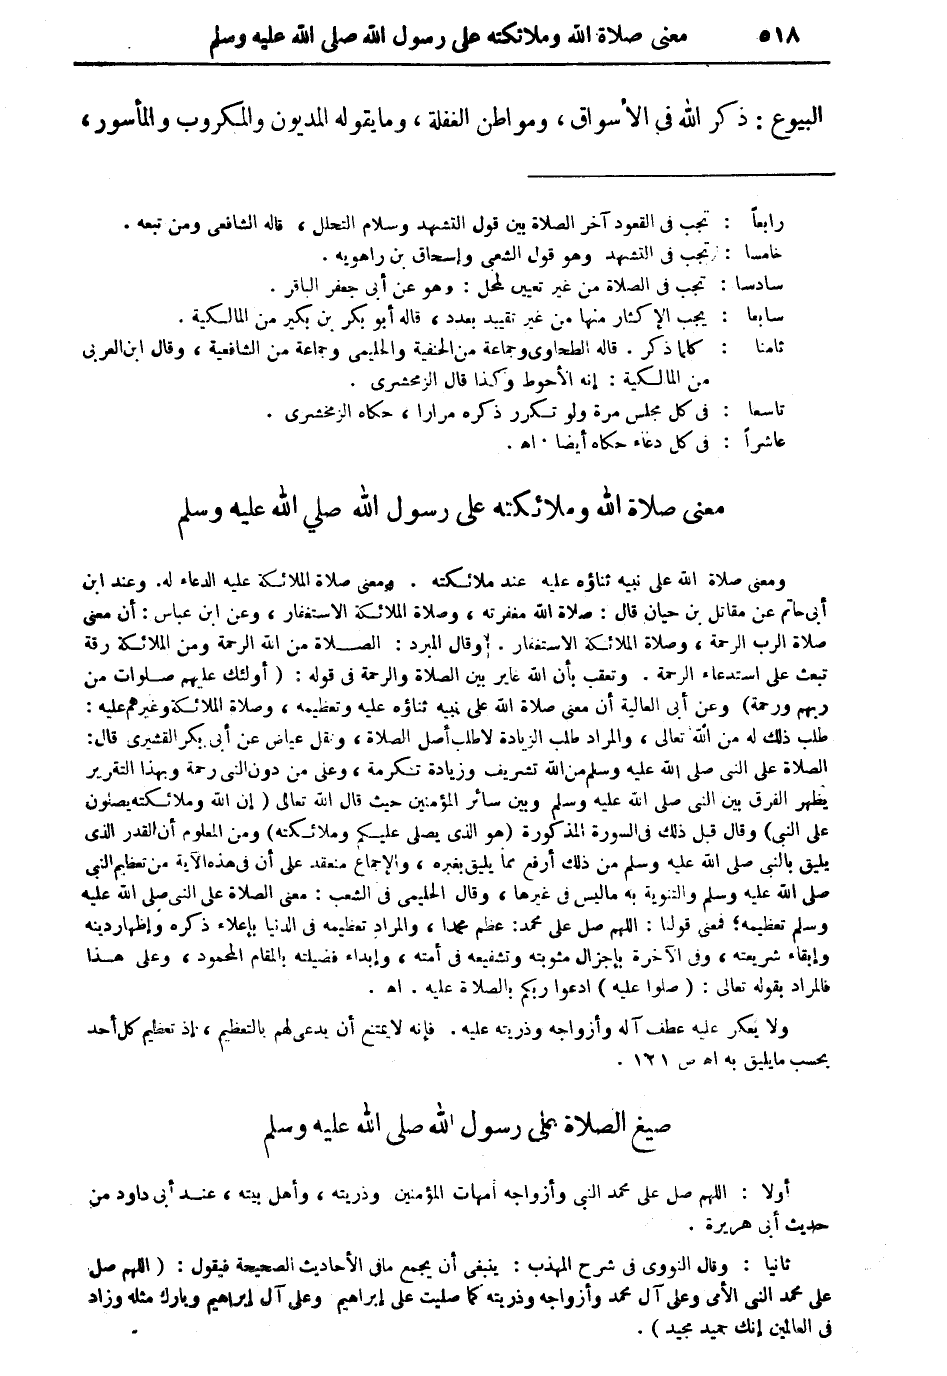 ٥١٨ معنى صلاة الله وملائكته على رسول الله صلى الله عليه وسلم
البيوع : ذكر الله فى الأسواق ، ومواطن الغفلة ، ومايقوله المديون والمكروب والمأسور ،
رابعاً : تجب فى القعود آخر الصلاة بين قول التشهد وسلام التحلل ، قاله الشافعى ومن تبعه .
خامسا : تجب فى التشهد وهو قول الشعبى وإسحاق بن راهويه .
سادسا : تجب فى الصلاة من غير تعيين لمحل : وهو عن أبى جعفر الباقر .
سابعا : يجب الإكثار منها من غير تقييد بعدد ، قاله أبو بكر بن بكير من المالكية .
ثامنا : كلما ذكر . قاله الطحاوى وجماعة من الحنفية والحليمى وجماعة من الشافعية ، وقال ابن العربى
من المالكية : إنه الأحوط وكذا قال الزمخشرى .
تاسعا : فى كل مجلس مرة ولو تكرر ذكره مرارا ، حكاه الزمخشرى .
عاشراً : فى كل دعاء حكاه أيضا . اهـ .
معنى صلاة الله وملائكته على رسول الله صلي الله عليه وسلم
ومعنى صلاة الله على نبيه ثناؤه عليه عند ملائكته . ومعنى صلاة الملائكة عليه الدعاء له. وعند ابن
أبى حاتم عن مقاتل بن حيان قال : صلاة الله مغفرته ، وصلاة الملائكة الاستغفار ، وعن ابن عباس : أن معنى
صلاة الرب الرحمة ، وصلاة الملائكة الاستغفار . وقال المبرد : الصلاة من الله الرحمة ومن الملائكة رقة
تبعث على استدعاء الرحمة . وتعقب بأن الله غاير بين الصلاة والرحمة فى قوله : ( أولئك عليهم صلوات من
ربهم ورحمة) وعن أبى العالية أن معنى صلاة الله على نبيه ثناؤه عليه وتعظيمه ، وصلاة الملائكة وغيرهم عليه :
طلب ذلك له من الله تعالى ، والمراد طلب الزيادة لا طلب أصل الصلاة ، ونقل عياض عن أبى بكر القشيرى قال:
الصلاة على النبى صلى الله عليه وسلم من الله تشريف وزيادة تكرمة ، وعلى من دون النبى رحمة وبهذا التقرير
يظهر الفرق بين النبى صلى الله عليه وسلم وبين سائر المؤمنين حيث قال الله تعالى ( إن الله وملائكته يصلون
على النبى) وقال قبل ذلك فى السورة المذكورة (هو الذى يصلى عليكم وملائكته) ومن المعلوم أن القدر الذى
يليق بالنبى صلى الله عليه وسلم من ذلك أرفع مما يليق بغيره ، والإجماع منعقد على أن فى هذه الآية من تعظيم النبى
صلى الله عليه وسلم والتنوية به ماليس فى غيرها ، وقال الحليمى فى الشعب : معنى الصلاة على النبى صلى الله عليه
وسلم تعظيمه؛ فمعنى قولنا : اللهم صل على محمد: عظم محمدا ، والمراد تعظيمه فى الدنيا بإعلاء ذكره وإظهار دينه
وإبقاء شريعته ، وفى الآخرة بإجزال مثوبته وتشفيعه فى أمته ، وإبداء فضيلته بالمقام المحمود ، وعلى هذا
فالمراد بقوله تعالى : ( صلوا عليه ) ادعوا ربكم بالصلاة عليه . اهـ .
ولا يعكر عليه عطف آله وأزواجه وذريته عليه . فإنه لا يمتنع أن يدعى لهم بالتعظيم ، إذ تعظيم كل أحد
بحسب مايليق به اهـ ص ١٢١ .
صيغ الصلاة على رسول الله صلى الله عليه وسلم
أولا : اللهم صل على محمد النبى وأزواجه أمهات المؤمنين وذريته ، وأهل بيته ، عند أبى داود من
حديث أبى هريرة .
ثانيا : وقال النووى فى شرح المهذب : ينبغى أن يجمع مافى الأحاديث الصحيحة فيقول : ( اللهم صل
على محمد النبى الأمى وعلى آل محمد وأزواجه وذريته كما صليت على إبراهيم وعلى آل إبراهيم وبارك مثله وزاد
فى العالمين إنك حميد مجيد ) .